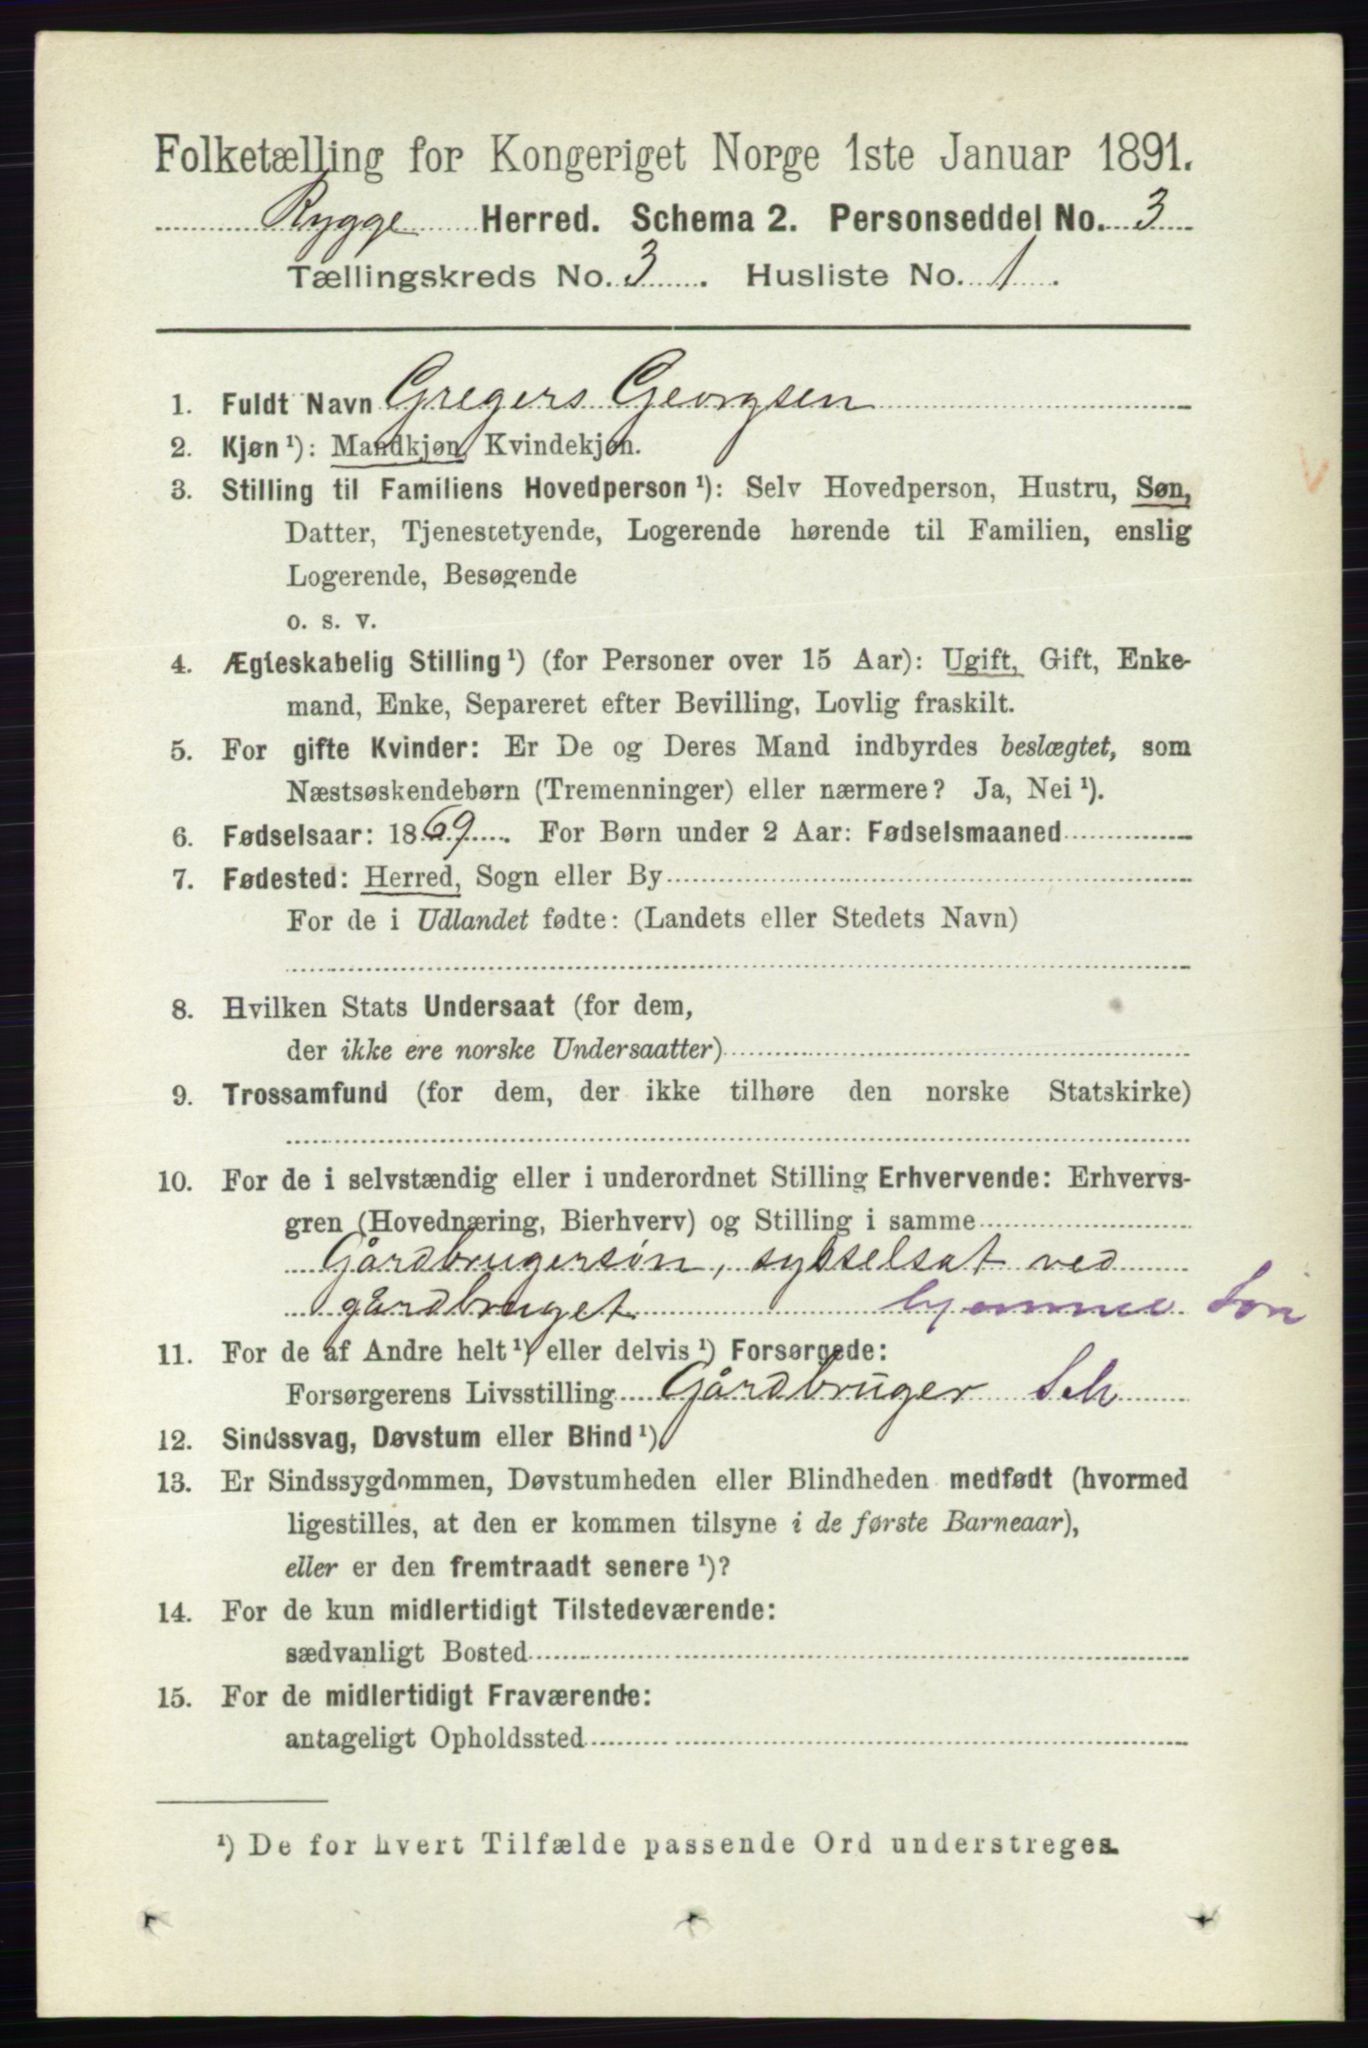 Folketælling for Kongeriget Norge 1ste Januar 1891.
Rygge Herred. Schema 2. Personseddel No. 3
Tællingskreds No. 3. Husliste No. 1.
1. Fuldt Navn Gregers Georgsen
2. Kjøn¹): Mandkjøn, Kvindekjøn.
3. Stilling til Familiens Hovedperson¹): Selv Hovedperson, Hustru, Søn,
Datter, Tjenestetyende, Logerende hørende til Familien, enslig
Logerende, Besøgende
o. s. v.
4. Ægteskabelig Stilling¹) (for Personer over 15 Aar): Ugift, Gift, Enke-
mand, Enke, Separeret efter Bevilling, Lovlig fraskilt.
5. For gifte Kvinder: Er De og Deres Mand indbyrdes beslægtet, som
Næstsøskendebørn (Tremenninger) eller nærmere? Ja, Nei¹).
6. Fødselsaar: 1869. For Børn under 2 Aar: Fødselsmaaned
7. Fødested: Herred, Sogn eller By
For de i Udlandet fødte: (Landets eller Stedets Navn)
8. Hvilken Stats Undersaat (for dem,
der ikke ere norske Undersaatter)
9. Trossamfund (for dem, der ikke tilhøre den norske Statskirke)
10. For de i selvstændig eller i underordnet Stilling Erhvervende: Erhvervs-
gren (Hovednæring, Bierhverv) og Stilling i samme
Gårdbrugersön, sysselsat ved
gårdbruget hjemme Søn
11. For de af Andre helt¹) eller delvis¹) Forsørgede:
Forsørgerens Livsstilling Gårdbruger
12. Sindssvag, Døvstum eller Blind¹).
13. Er Sindssygdommen, Døvstumheden eller Blindheden medfødt (hvormed
ligestilles, at den er kommen tilsyne i de første Barneaar),
eller er den fremtraadt senere¹)?
14. For de kun midlertidigt Tilstedeværende:
sædvanligt Bosted
15. For de midlertidigt Fraværende:
antageligt Opholdssted
¹) De for hvert Tilfælde passende Ord understreges.